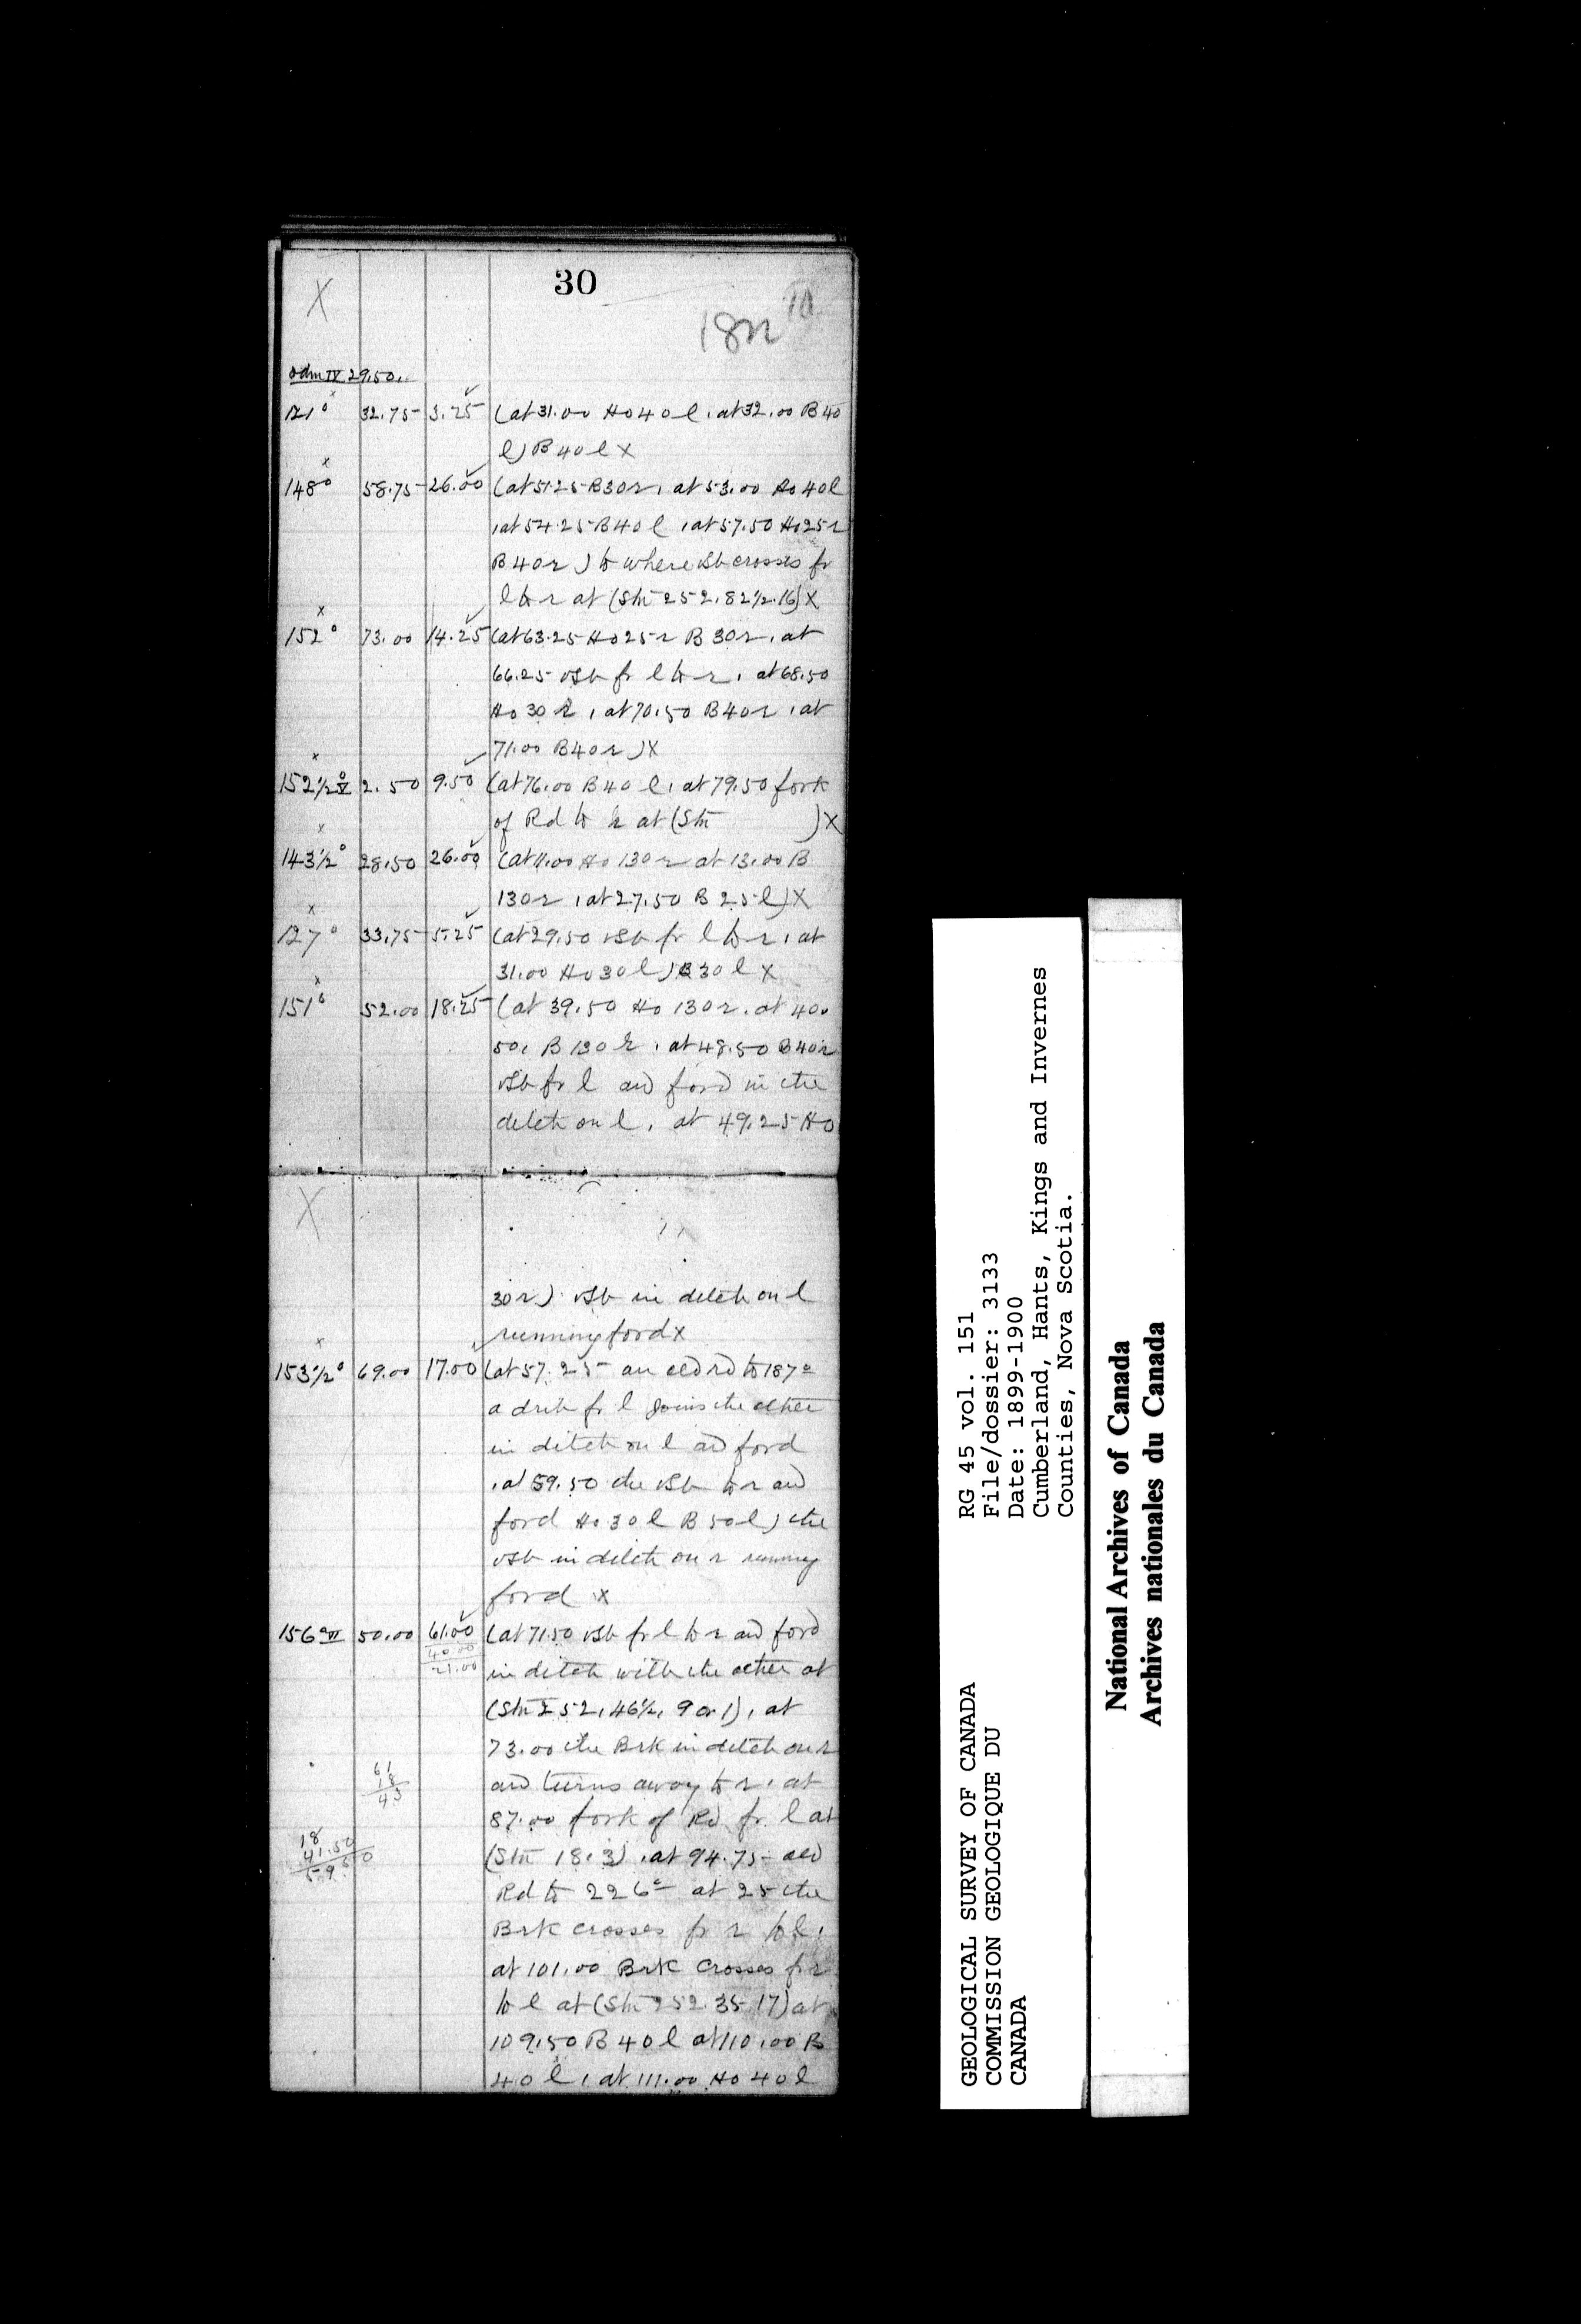 30
X
18r
odm IV 29.50..
121° 32.75 3.25 (at 31.00 Ho 40 l, at 32.00 B 40
l) B 40 l X
148° 58.75 26.00 (at 51.25 B 30 r, at 53.00 Ho 40 l
, at 54.25 B 40 l , at 57.50 Ho 25 r
B 40 r ) to where vsb crosses fr
l to r at (Stn 252, 82 1/2.16) X
152° 73.00 14.25 (at 63.25 Ho 25 r B 30 r, at
66.25 vsb fr l to r, at 68.50
Ho 30 r , at 70.50 B 40 r , at
71.00 B 40 r ) X
152 1/2° V 2.50 9.50 (at 76.00 B 40 l, at 79.50 fork
of Rd to r at (Stn ) X
143 1/2° 28.50 26.00 (at 11.00 Ho 130 r at 13.00 B
130 r , at 27.50 B 25 l) X
127° 33.75 5.25 (at 29.50 vsb fr l to r, at
31.00 Ho 30 l ) B 30 l X
151° 52.00 18.25 (at 39.50 Ho 130 r. at 40.
50, B 130 r , at 48.50 B 40 r
vsb fr l and ford in the
ditch on l, at 49.25 Ho
X
30 r ) vsb in ditch on l
running ford X
153 1/2° 69.00 17.00 (at 57.25 an old rd to 187°
a drib fr l joins the other
in ditch on l and ford
, at 59.50 the vsb to r and
ford Ho 30 l B 50 l ) the
vsb in ditch on r running
ford X
156° VI 50.00 61.00 (at 71.50 vsb fr l to r and ford
40.00
21.00
in ditch with the other at
(Stn 252, 46 1/2, 9 or 1), at
73.00 the Brk in ditch on r
61
18
43
and turns away to r, at
87.00 fork of Rd fr l at
18
41.50
59.50
(Stn 18.3) , at 94.75 old
Rd to 226° at 25 the
Brk crosses fr r to l,
at 101.00 Brk crosses fr r
to l at (Stn 252.35.17) at
109.50 B 40 l at 110.00 B
40 l, at 111.00 Ho 40 l
GEOLOGICAL SURVEY OF CANADA
COMMISSION GEOLOGIQUE DU
CANADA
RG 45 vol. 151
File/dossier: 3133
Date: 1899-1900
Cumberland, Hants, Kings and Invernes
Counties, Nova Scotia.
National Archives of Canada
Archives nationales du Canada